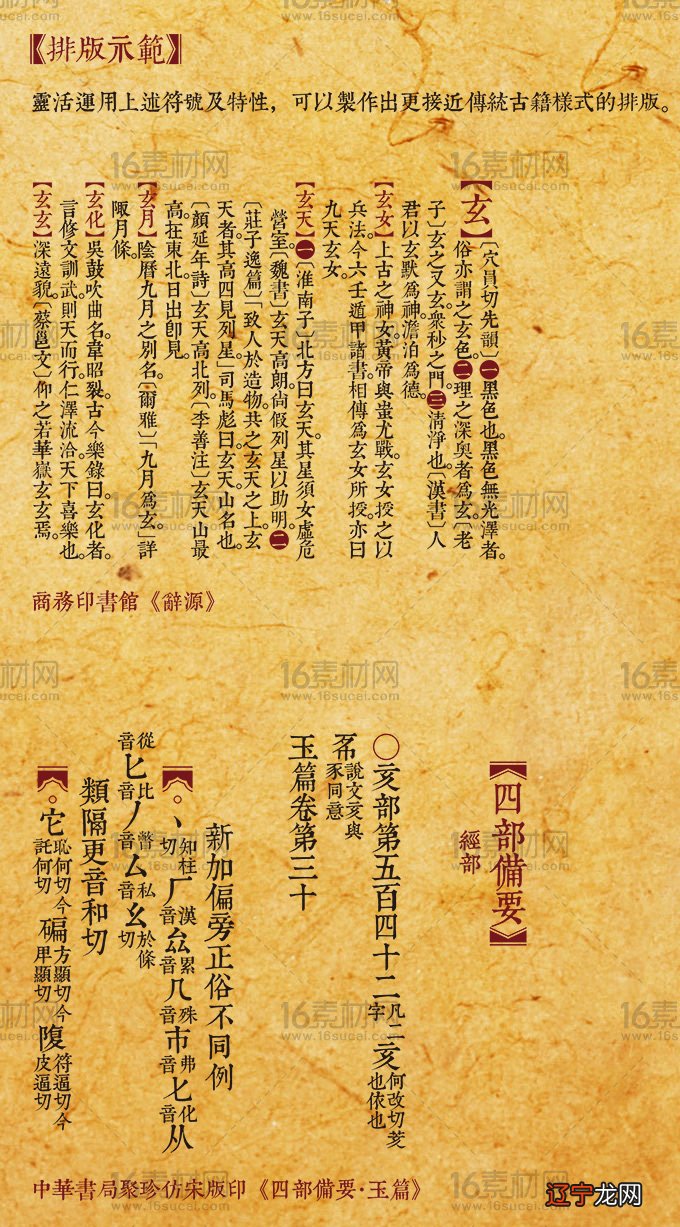 【排版示範】
靈活運用上述符號及特性，可以製作出更接近傳統古籍樣式的排版。
【玄】〔穴員切先韻〕一黑色也。黑色無光澤者。
俗亦謂之玄色。二理之深奧者爲玄。〔老
子〕玄之又玄。衆秒之門。三清淨也。〔漢書〕人
君以玄默爲神。澹泊爲德。
【玄女】上古之神女。黃帝與蚩尤戰。玄女授之以
兵法。今六壬遁甲諸書。相傳爲玄女所授。亦曰
九天玄女。
【玄天】一〔淮南子〕北方曰玄天。其星須女虛危
營室。〔魏書〕玄天高朗。尙假列星以助明。二
〔莊子逸篇〕「致人於造物。共之玄天之上。玄
天者。其高四見列星」司馬彪曰。玄天。山名也。
〔顏延年詩〕玄天高北列。〔李善注〕玄天山最
高。在東北。日出卽見。
【玄月】陰曆九月之別名。〔爾雅〕「九月爲玄。」詳
陬月條。
【玄化】吳鼓吹曲名。韋昭裂。古今樂錄曰。玄化者。
言修文訓武。則天而行。仁澤流洽。天下喜樂也。
【玄玄】深遠貌。〔蔡邕文〕仰之若華嶽玄玄焉。
商務印書館《辭源》
【四部備要】
經部
〇亥部第五百四十二凡二字亥何改切荄也依也
說文亥與豕同意
玉篇卷第三十
新加偏旁正俗不同例
丶知柱切厂漢音厽累音几殊音巿弗音匕化音从
從音匕比音丿瞥音厶私音幺於條切
類隔更音和切
它恥何切今託何切碥方顯切今畀顯切愎符逼切今皮逼切
中華書局聚珍仿宋版印《四部備要·玉篇》
16素材网
www.16sucai.com
辽宁龙网